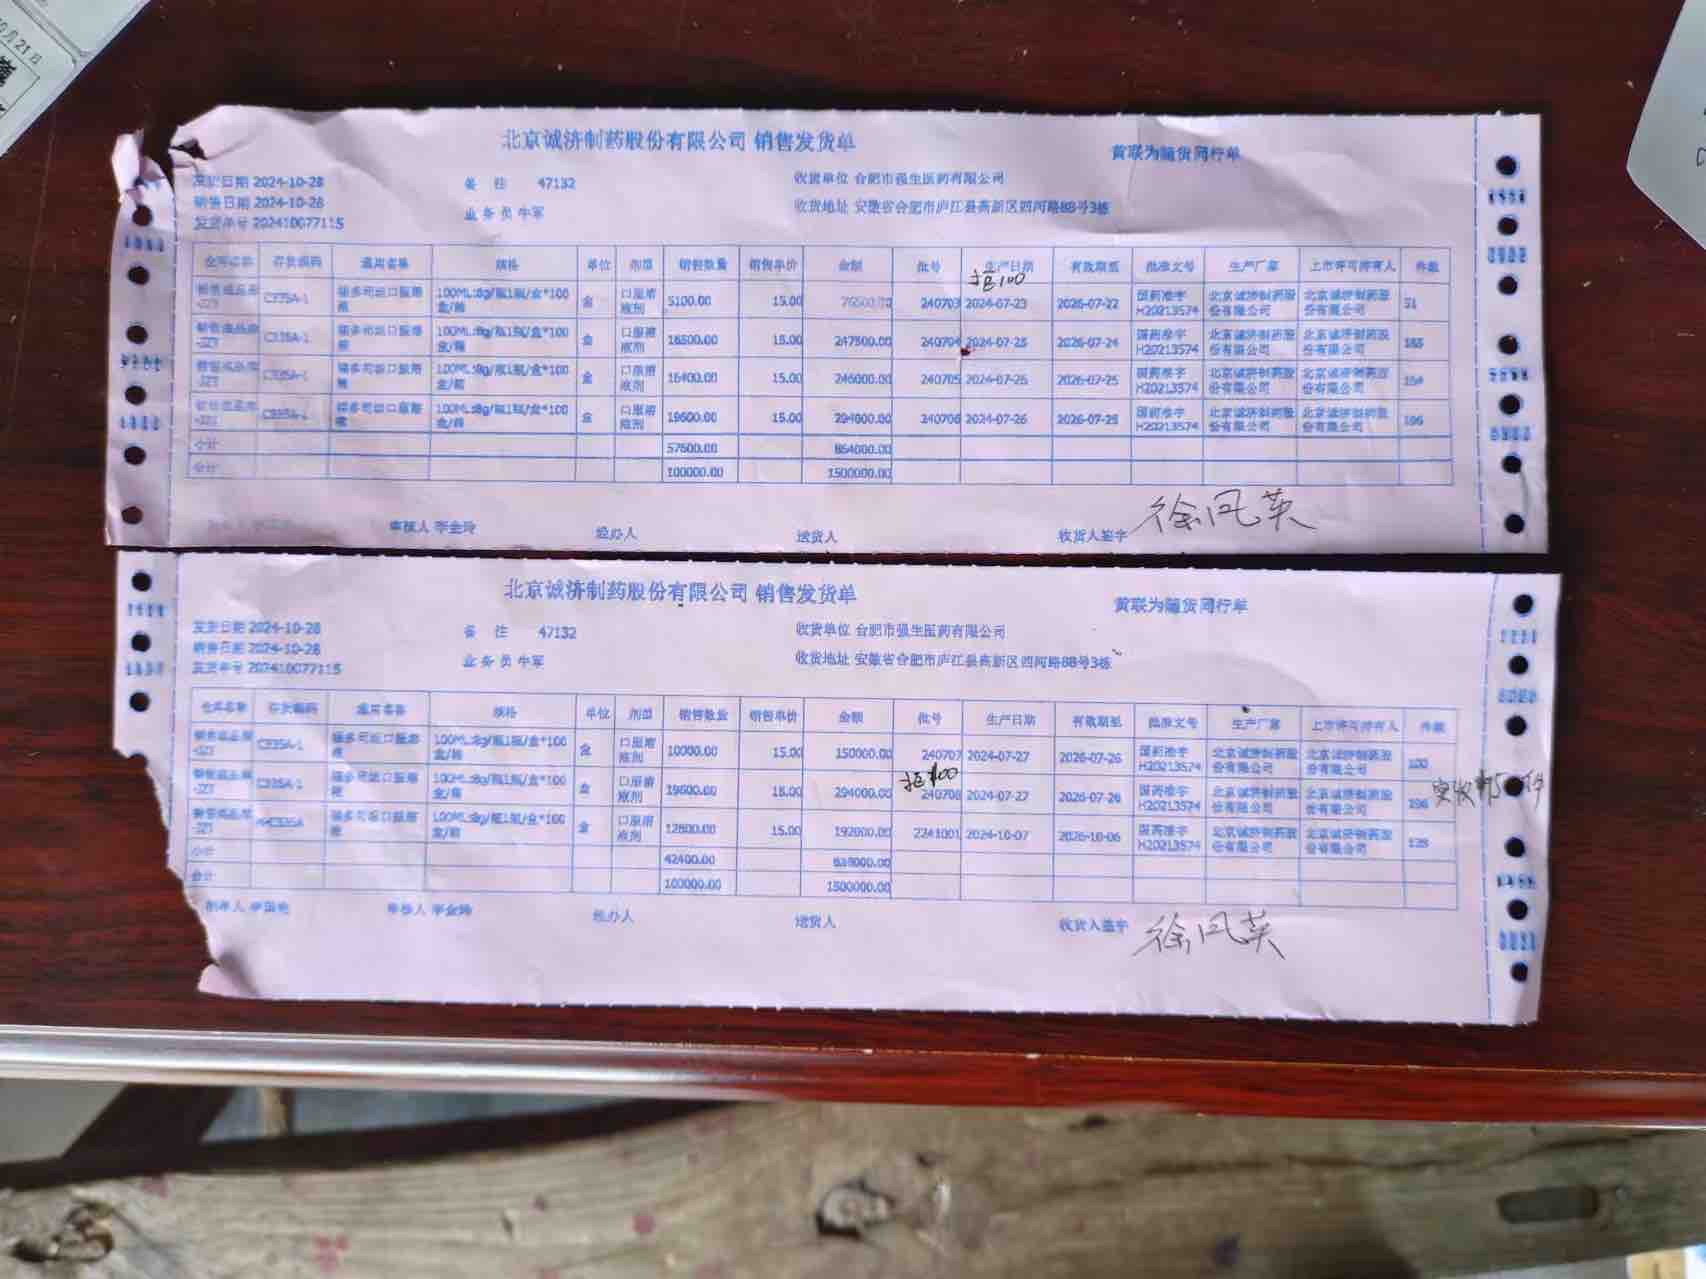 月21日
北京诚济制药股份有限公司 销售发货单
黄联为随货同行单
发货日期 2024-10-28
备 注 47132
收货单位 合肥市强生医药有限公司
销售日期 2024-10-28
业务员 牛军
收货地址 安徽省合肥市庐江县高新区四河路88号3栋
发货单号 202410077115
仓库名称 存货编码 通用名称 规格 单位 剂型 销售数量 销售单价 金额 批号 生产日期 有效期至 批准文号 生产厂家 上市许可持有人 件数
100
销售成品库-JZT C335A-1 福多司坦口服溶液 100ML:8g/瓶1瓶/盒*100盒/箱 盒 口服溶液剂 5100.00 15.00 76500.00 240703 2024-07-23 2026-07-22 国药准字H20213574 北京诚济制药股份有限公司 北京诚济制药股份有限公司 51
销售成品库-JZT C335A-1 福多司坦口服溶液 100ML:8g/瓶1瓶/盒*100盒/箱 盒 口服溶液剂 16500.00 15.00 247500.00 240704 2024-07-25 2026-07-24 国药准字H20213574 北京诚济制药股份有限公司 北京诚济制药股份有限公司 165
销售成品库-JZT C335A-1 福多司坦口服溶液 100ML:8g/瓶1瓶/盒*100盒/箱 盒 口服溶液剂 16400.00 15.00 246000.00 240705 2024-07-26 2026-07-25 国药准字H20213574 北京诚济制药股份有限公司 北京诚济制药股份有限公司 164
销售成品库-JZT C335A-1 福多司坦口服溶液 100ML:8g/瓶1瓶/盒*100盒/箱 盒 口服溶液剂 19600.00 15.00 294000.00 240706 2024-07-26 2026-07-25 国药准字H20213574 北京诚济制药股份有限公司 北京诚济制药股份有限公司 196
小计 57600.00 864000.00
合计 100000.00 1500000.00
审核人 李金玲 经办人 送货人 收货人签字 徐凤英
北京诚济制药股份有限公司 销售发货单
黄联为随货同行单
发货日期 2024-10-28
备 注 47132
收货单位 合肥市强生医药有限公司
销售日期 2024-10-28
业务员 牛军
收货地址 安徽省合肥市庐江县高新区四河路88号3栋
发货单号 202410077115
仓库名称 存货编码 通用名称 规格 单位 剂型 销售数量 销售单价 金额 批号 生产日期 有效期至 批准文号 生产厂家 上市许可持有人 件数
销售成品库-JZT C335A-1 福多司坦口服溶液 100ML:8g/瓶1瓶/盒*100盒/箱 盒 口服溶液剂 10000.00 15.00 150000.00 240707 2024-07-27 2026-07-26 国药准字H20213574 北京诚济制药股份有限公司 北京诚济制药股份有限公司 100
销售成品库-JZT C335A-1 福多司坦口服溶液 100ML:8g/瓶1瓶/盒*100盒/箱 盒 口服溶液剂 19600.00 15.00 294000.00 240708 2024-07-27 2026-07-26 国药准字H20213574 北京诚济制药股份有限公司 北京诚济制药股份有限公司 196 实收
销售成品库-JZT 福多司坦口服溶液 100ML:8g/瓶1瓶/盒*100盒/箱 盒 口服溶液剂 12800.00 15.00 192000.00 2241001 2024-10-07 2026-10-06 国药准字H20213574 北京诚济制药股份有限公司 北京诚济制药股份有限公司 128
小计 42400.00 636000.00
合计 100000.00 1500000.00
制单人 审核人 李金玲 经办人 送货人 收货人签字 徐凤英